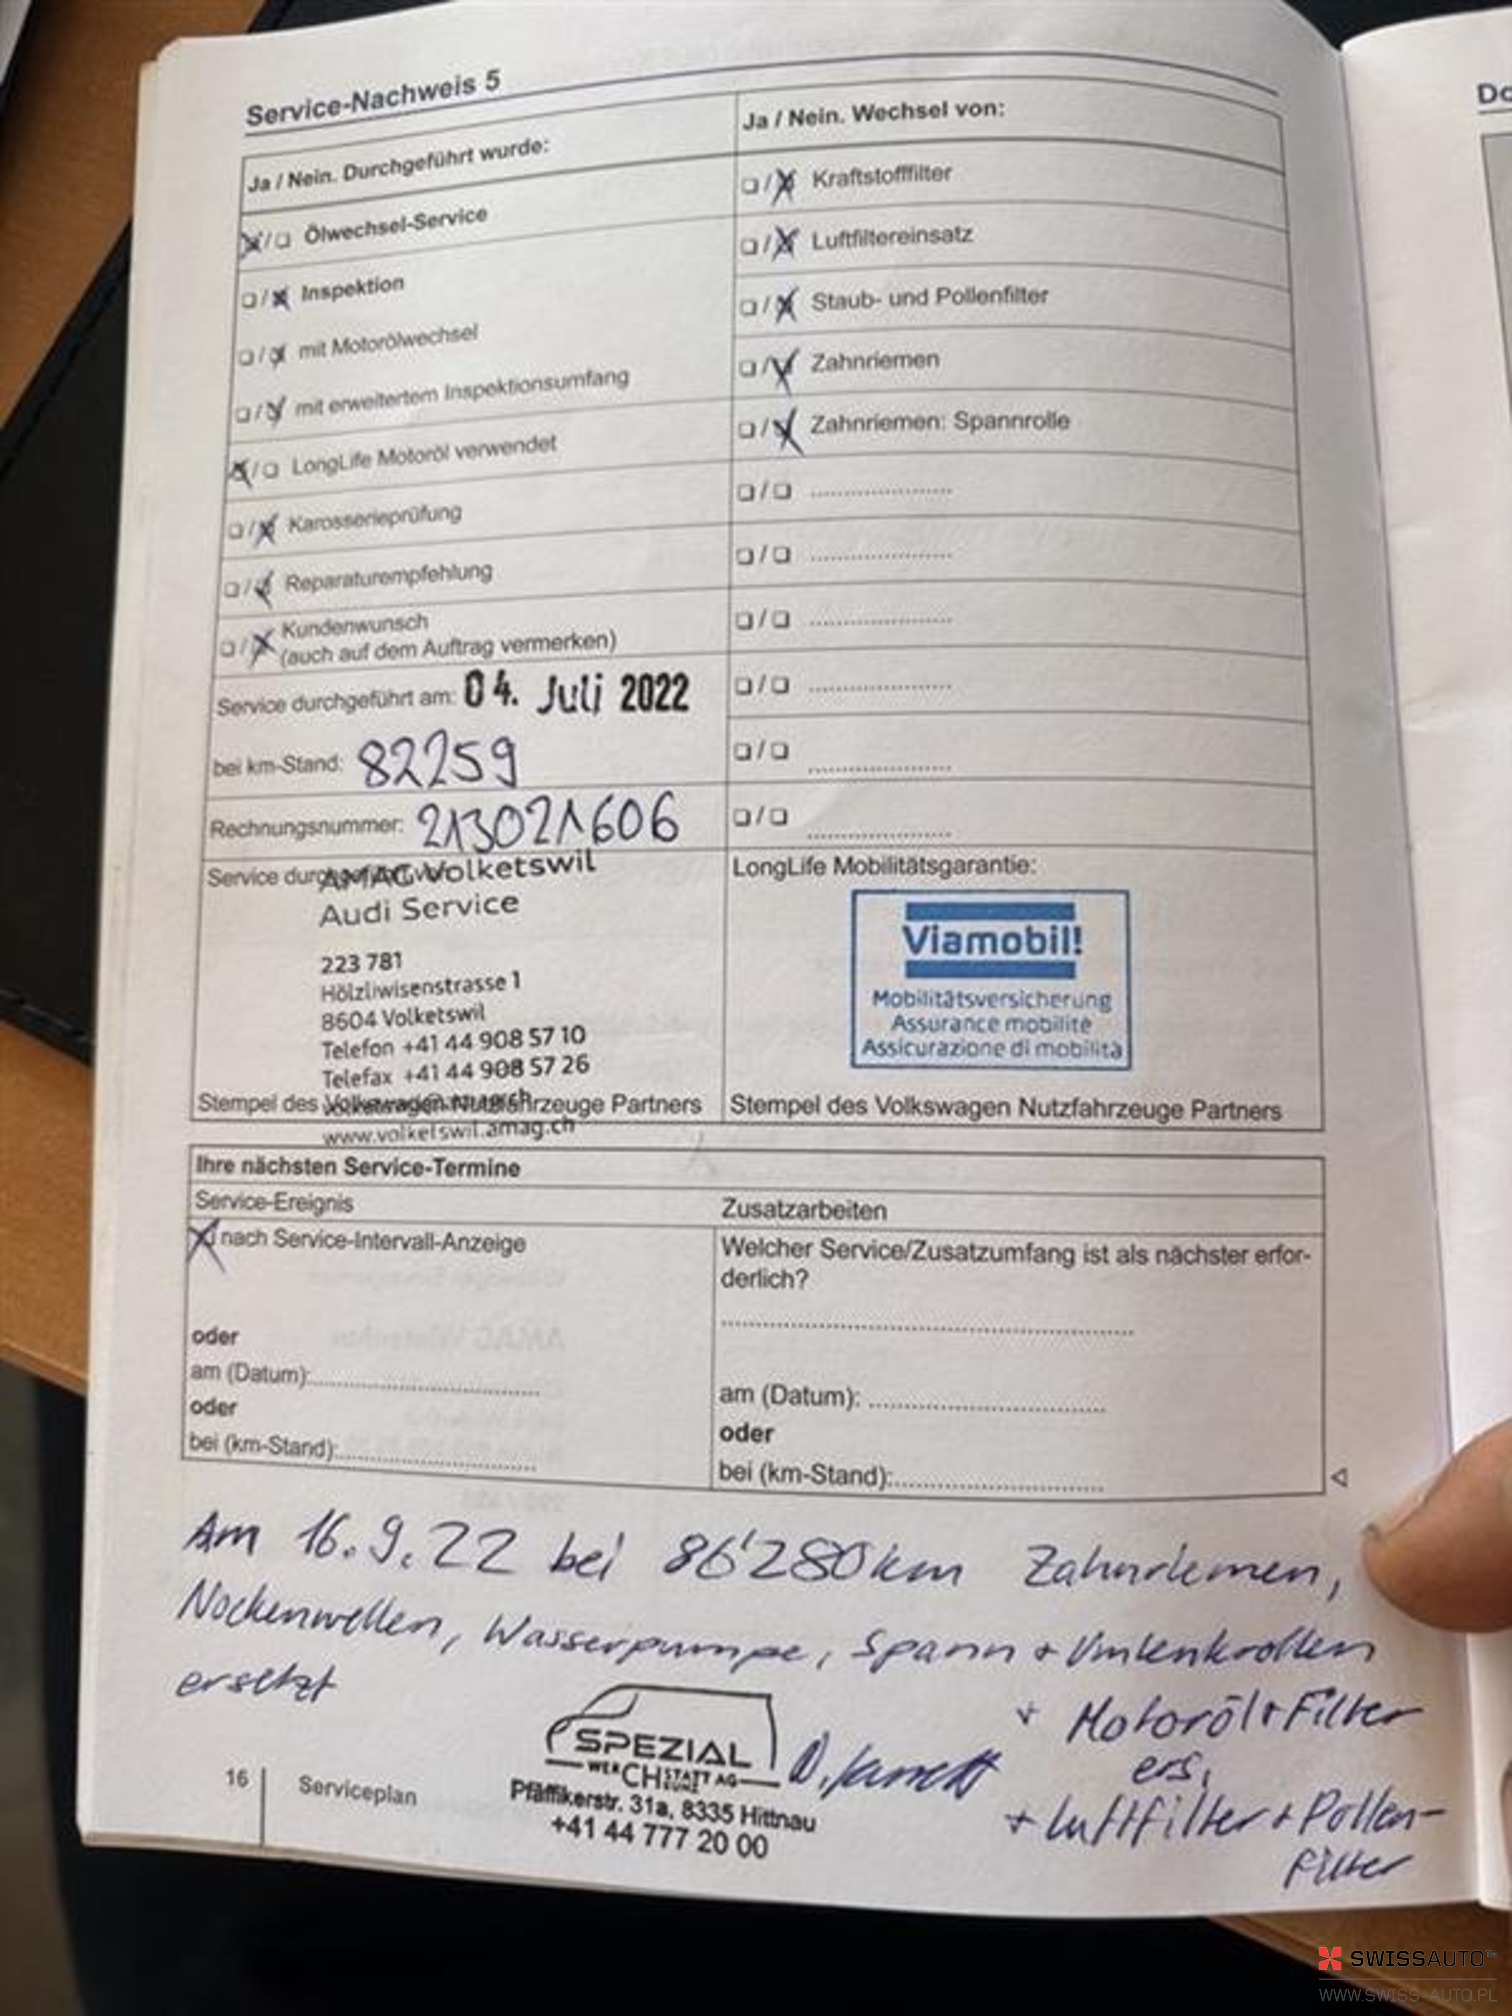 Service-Nachweis 5
Ja / Nein. Durchgeführt wurde:
Ölwechsel-Service
Inspektion
mit Motorölwechsel
mit erweitertem Inspektionsumfang
LongLife Motoröl verwendet
Karosserieprüfung
Reparaturempfehlung
Kundenwunsch
(auch auf dem Auftrag vermerken)
Service durchgeführt am: 04. Juli 2022
bei km-Stand: 82259
Rechnungsnummer: 213021606
Ja / Nein. Wechsel von:
Kraftstofffilter
Luftfiltereinsatz
Staub- und Pollenfilter
Zahnriemen
Zahnriemen: Spannrolle
Service durchgeführt von:
AMAG Volketswil
Audi Service
223 781
Hölzliwisenstrasse 1
8604 Volketswil
Telefon +41 44 908 57 10
Telefax +41 44 908 57 26
www.volketswil.amag.ch
Stempel des Volkswagen Nutzfahrzeuge Partners
LongLife Mobilitätsgarantie:
Viamobil!
Mobilitätsversicherung
Assurance mobilité
Assicurazione di mobilità
Stempel des Volkswagen Nutzfahrzeuge Partners
Ihre nächsten Service-Termine
Service-Ereignis
nach Service-Intervall-Anzeige
oder
am (Datum):
oder
bei (km-Stand):
Zusatzarbeiten
Welcher Service/Zusatzumfang ist als nächster erfor-
derlich?
am (Datum):
oder
bei (km-Stand):
Am 16.9.22 bei 86'280km Zahnriemen,
Nockenwellen, Wasserpumpe, Spann + Umlenkrollen
ersetzt
+ Motoröl + Filter
ers,
+ Luftfilter + Pollen-
filter
SPEZIAL
WERCHSTATT AG
Pfäffikerstr. 31a, 8335 Hittnau
+41 44 777 20 00
16
Serviceplan
Do
SWISSAUTO
WWW.SWISS-AUTO.PL